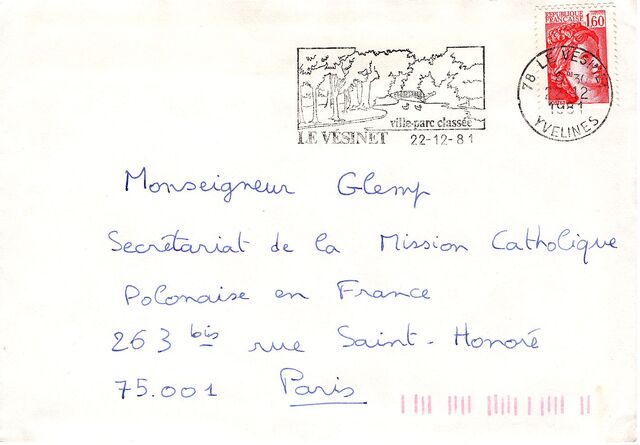 REPUBLIQUE
FRANCAISE 1,60
78 LE VESINET
12
1981
YVELINES
ville-parc classée
LE VÉSINET 22-12-81
Monseigneur Glemp
Secrétariat de la Mission Catholique
Polonaise en France
263 bis rue Saint-Honoré
75.001 Paris